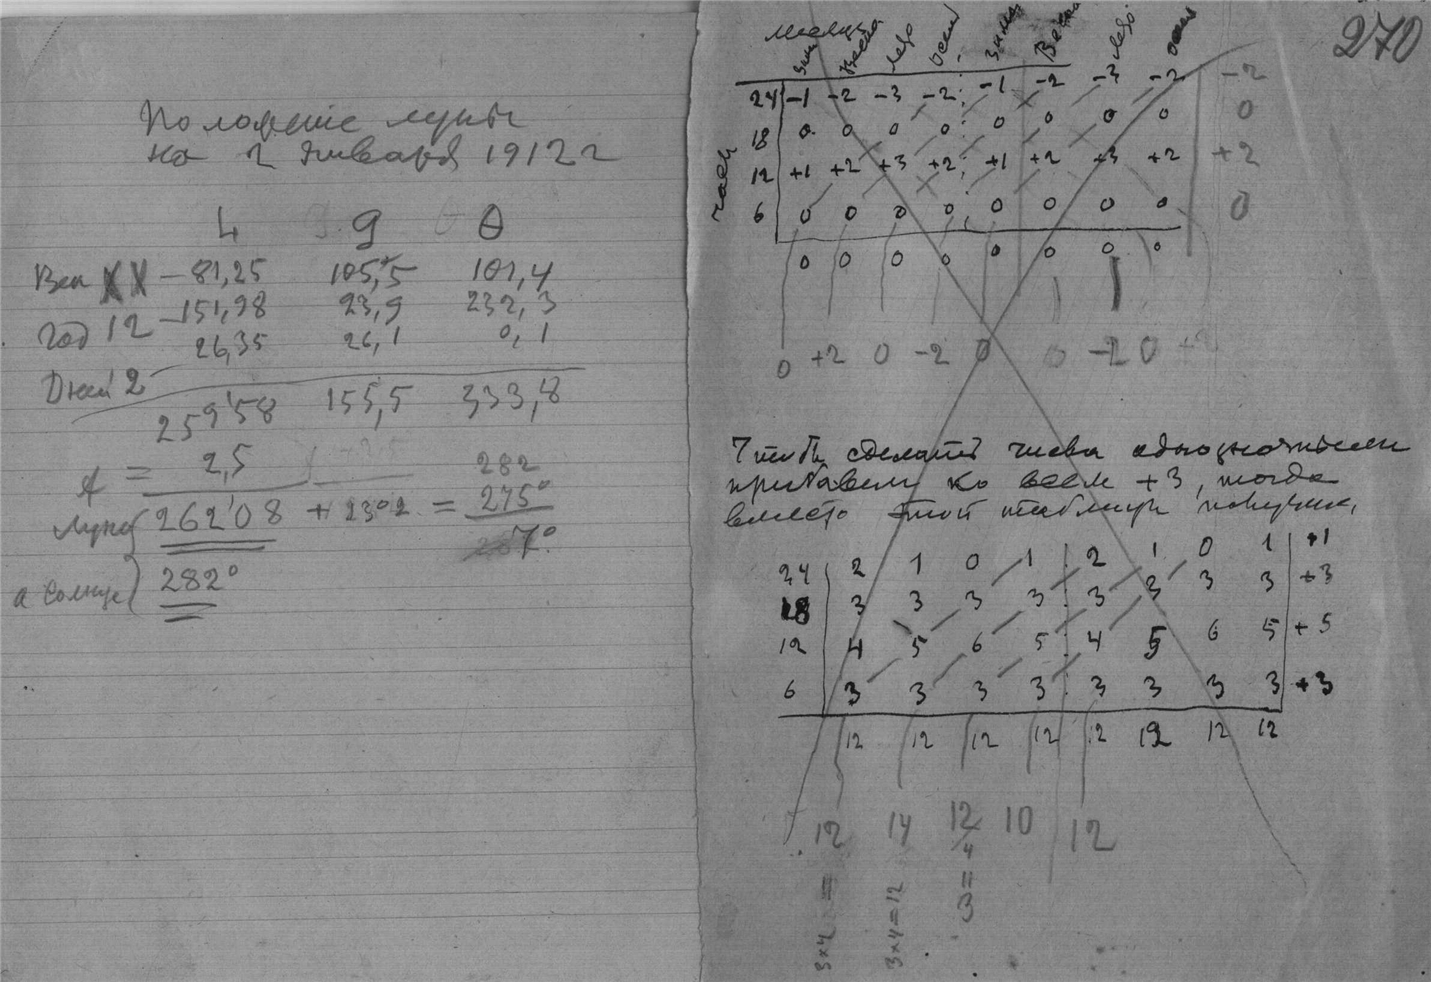 Положение луны
на 2 января 1912 г
L g θ
Век XX −81,25 105,5 101,4
Год 12 −151,98 23,9 232,3
Дней 2 26,35 26,1 0,1
259'58 155,5 333,8
A = 2,5 282
Луна 262'08 + 23°2 = 275°
7°
а солнце 282°
270
месяцы
зим Весна лето осен зима Весна лето осен
часы
24 −1 −2 −3 −2 −1 −2 −3 −2 −2
18 0 0 0 0 0 0 0 0 0
12 +1 +2 +3 +2 +1 +2 +3 +2 +2
6 0 0 0 0 0 0 0 0 0
0 0 0 0 0 0 0 0
0 +2 0 −2 0 0 −2 0 +2
Чтобы сделать числа однозначными
прибавим ко всем +3, тогда
вместо этой таблицы получим,
24 2 1 0 1 2 1 0 1 +1
18 3 3 3 3 3 3 3 3 +3
12 4 5 6 5 4 5 6 5 +5
6 3 3 3 3 3 3 3 3 +3
12 12 12 12 12 12 12 12
12 14 12 10 12
3×4 =
3×4=12
3=4